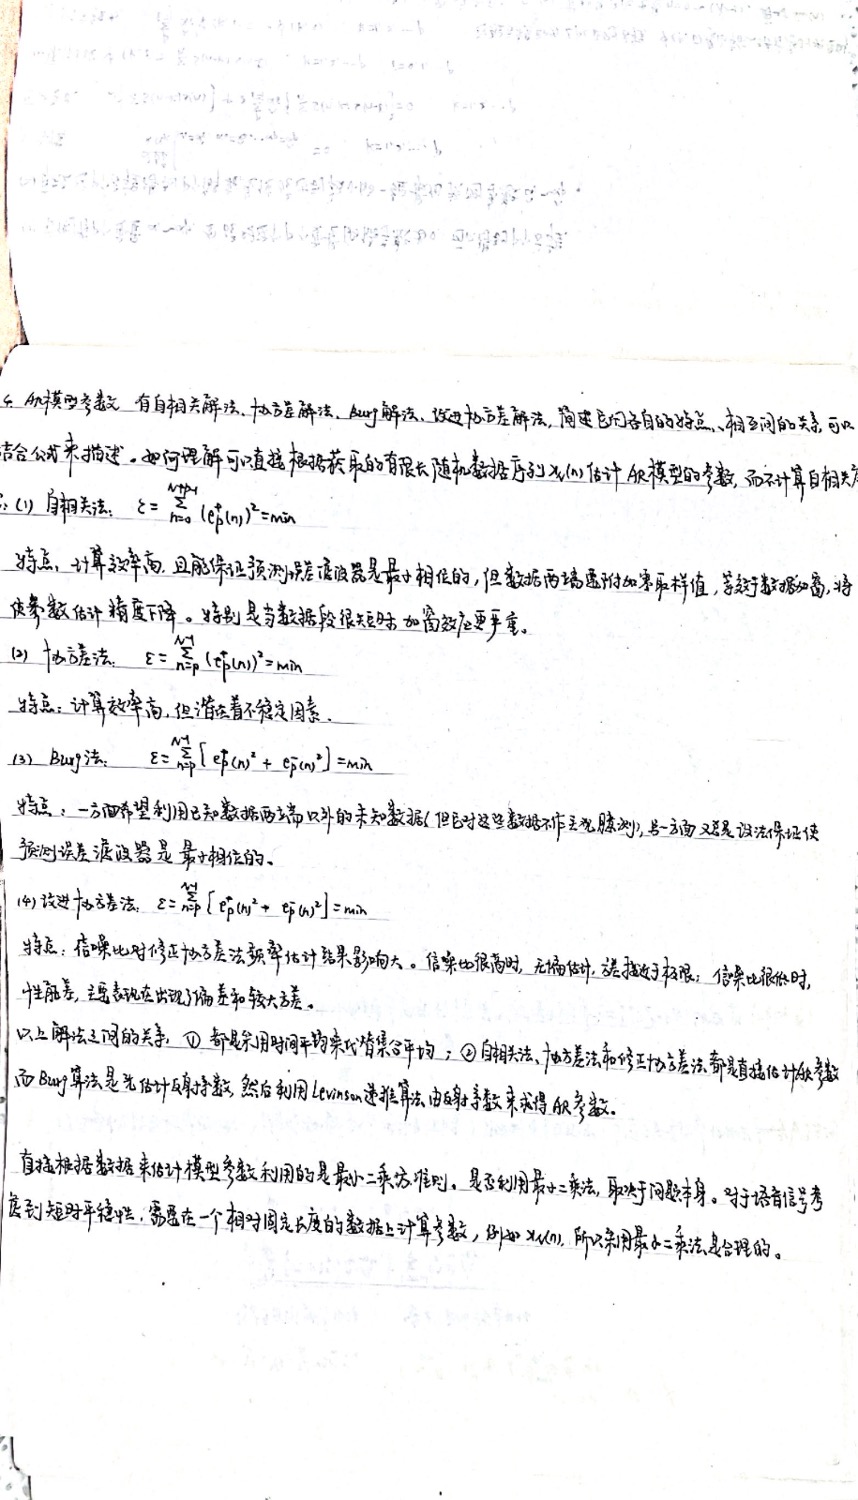 4. AR模型参数 有自相关解法、协方差解法、Burg解法、改进协方差解法,简述它们各自的特点、相互间的关系,可以
结合公式来描述。如何理解可以直接根据获取的有限长随机数据序列 xN(n) 估计 AR模型的参数,而不计算自相关
(1) 自相关法: ε=∑_{n=0}^{N+p-1} (e_p^+(n))²=min
特点:计算效率高,且能保证预测误差滤波器是最小相位的,但数据两端要附加零取样值,等效于数据加窗,将
使参数估计精度下降。特别是当数据段很短时加窗效应更严重。
(2) 协方差法: ε=∑_{n=p}^{N-1} (e_p^+(n))²=min
特点:计算效率高,但潜在着不稳定因素.
(3) Burg法: ε=∑_{n=p}^{N-1} [e_p^+(n)²+e_p^-(n)²]=min
特点:一方面希望利用已知数据两端以外的未知数据(但它对这些数据不作主观臆测),另一方面又总是设法保证使
预测误差滤波器是最小相位的。
(4) 改进协方差法: ε=∑_{n=p}^{N-1} [e_p^+(n)²+e_p^-(n)²]=min
特点:信噪比对修正协方差法频率估计结果影响大。信噪比很高时,无偏估计,方差接近于极限;信噪比很低时,
性能差,主要表现在出现了偏差和较大方差。
以上解法之间的关系:① 都是采用时间平均来代替集合平均;②自相关法、协方差法和修正协方差法都是直接估计AR参数
而Burg算法是先估计反射系数,然后利用Levinson递推算法由反射系数来求得AR参数。
直接根据数据来估计模型参数利用的是最小二乘方准则。是否利用最小二乘法,取决于问题本身。对于语音信号考
虑到短时平稳性,需要在一个相对固定长度的数据上计算参数,例如 xN(n),所以采用最小二乘法是合理的。